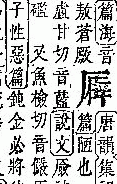 唐韻集
篇陋也
𠪮
篇海音
敖蒼厫
盧甘切音藍說文厱
礛　又魚檢切音儼
子性惡篇鈍金必將